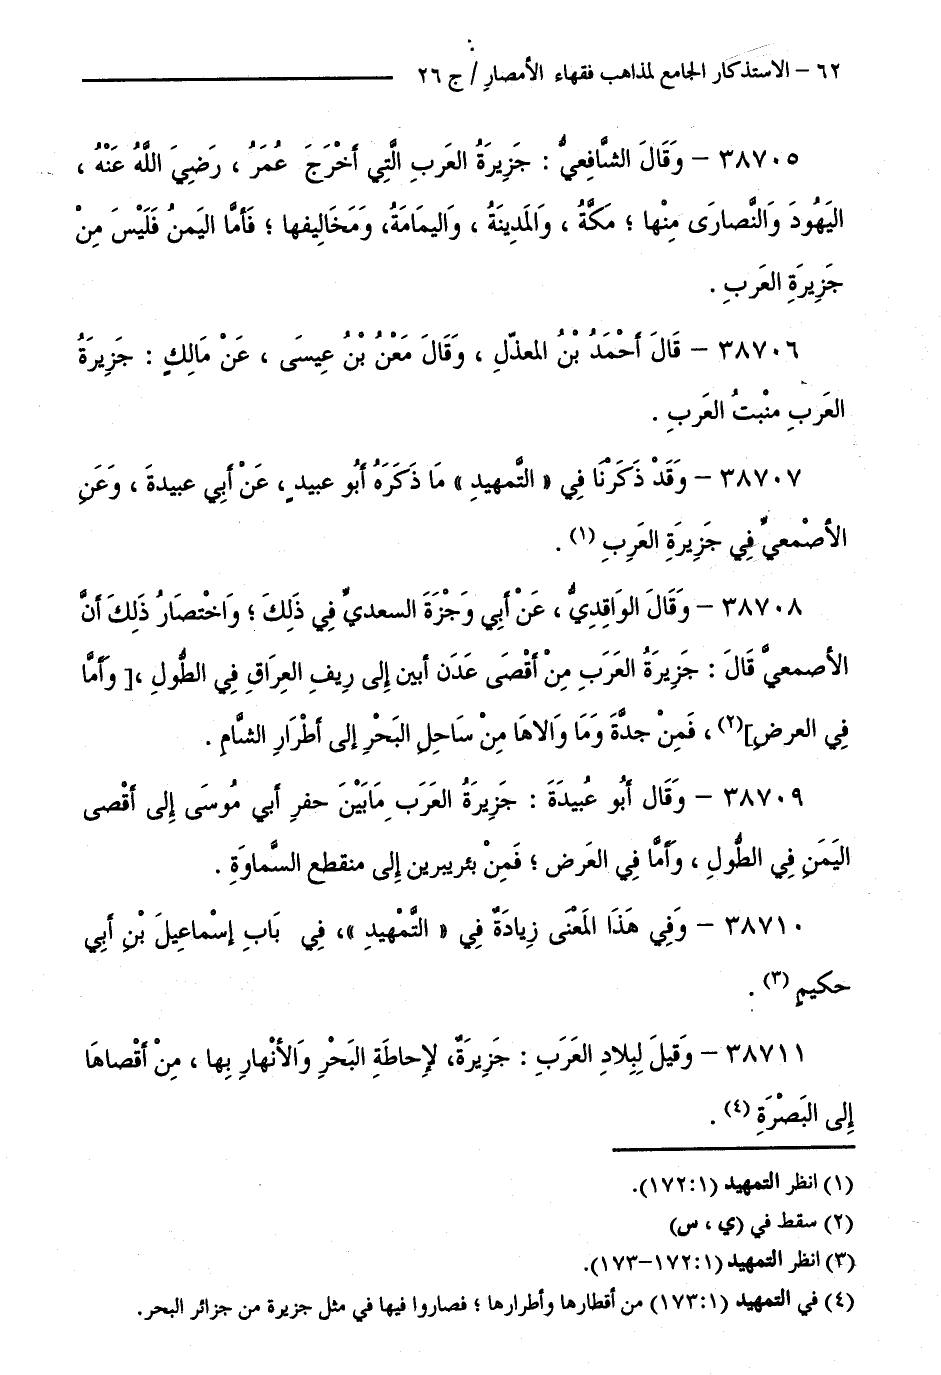 ٦٢ – الاستذكار الجامع لمذاهب فقهاء الأمصار / ج ٢٦
٣٨٧٠٥ – وَقَالَ الشَّافِعِيُّ : جَزِيرَةُ العَرَبِ الَّتِي أَخْرَجَ عُمَرُ ، رَضِيَ اللَّهُ عَنْهُ ،
اليَهُودَ وَالنَّصارَى مِنْها ؛ مَكَّةُ ، وَالمَدِينَةُ ، وَاليمامَةُ، وَمَخَالِيفها ؛ فَأَمَّا اليَمنُ فَلَيْسَ مِنْ
جَزِيرَةِ العَرَبِ .
٣٨٧٠٦ – قَالَ أَحْمَدُ بْنُ المعذّلِ ، وَقَالَ مَعْنُ بْنُ عِيسَى ، عَنْ مَالِكٍ : جَزِيرَةُ
العَرَبِ منْبتُ العَرَبِ .
٣٨٧٠٧ – وَقَدْ ذَكَرْنَا فِي « التَّمهيدِ » مَا ذَكَرَهُ أَبُو عبيدٍ ، عَنْ أَبِي عبيدةَ ، وَعَنِ
الأصْمعيِّ فِي جَزِيرَةِ العَرِبِ (١) .
٣٨٧٠٨ – وَقَالَ الوَاقِدِيُّ ، عَنْ أَبِي وَجْزَةَ السعديِّ فِي ذَلِكَ ؛ وَاخْتصَارُ ذَلِكَ أَنَّ
الأصمعيَّ قَالَ : جَزِيرَةُ العَرَبِ مِنْ أَقْصَى عَدَن أبين إِلى رِيفِ العِرَاقِ فِي الطُّولِ ،[ وَأَمَّا
فِي العرضِ](٢) ، فَمِنْ جدَّةَ وَمَا وَالاهَا مِنْ سَاحِلِ البَحْرِ إلى أطْرَارِ الشَّامِ .
٣٨٧٠٩ – وَقَال أَبُو عُبيدَةَ : جَزِيرَةُ العَرَبِ مَابَيْنَ حفرِ أبي مُوسَى إِلى أَقْصى
اليَمَنِ فِي الطُّولِ ، وَأَمَّا فِي العَرضِ ؛ فَمِنْ بئريبرين إِلى منقطع السَّماوَةِ .
٣٨٧١٠ – وَفِي هَذَا المَعْنَى زِيادَةٌ فِي « التَّمْهِيدِ »، فِي بَابِ إِسْماعِيلَ بْنِ أَبِي
حكيمٍ (٣) .
٣٨٧١١ – وَقيلَ لِبِلادِ العَرَبِ : جَزِيرَةٌ، لإِحاطَةِ البَحْرِ وَالأَنْهارِ بِها ، مِنْ أَقْصاهَا
إِلى البَصْرَةِ (٤) .
(١) انظر التمهيد (١٧٢:١).
(٢) سقط في (ي ، س)
(٣) انظر التمهيد (١٧٢:١–١٧٣).
(٤) في التمهيد (١٧٣:١) من أقطارها وأطرارها ؛ فصاروا فيها في مثل جزيرة من جزائر البحر.